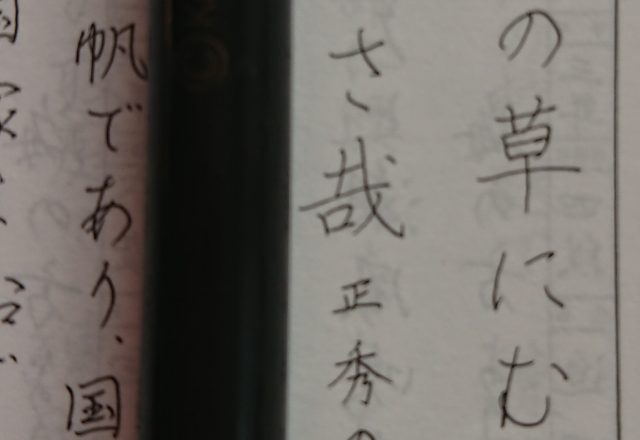 の草にむ
さ哉正秀の
帆であり、国